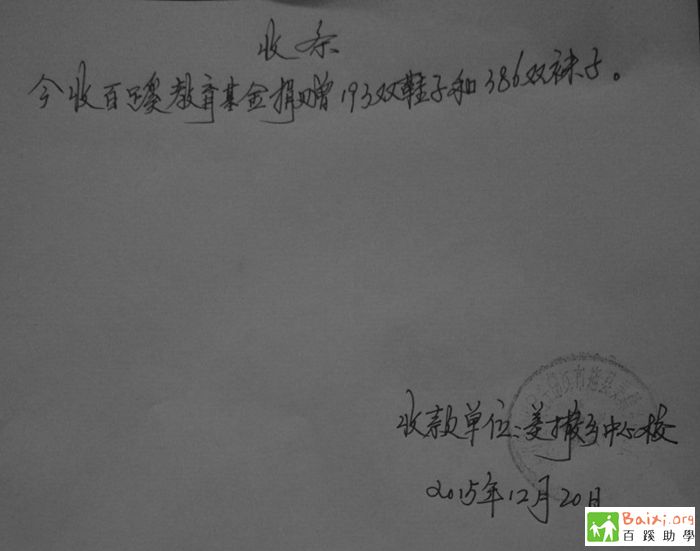 收条
今收百蹊教育基金捐赠193双鞋子和386双袜子。
收款单位:姜撒乡中心校
2015年12月20日
Baixi.org
百蹊助學